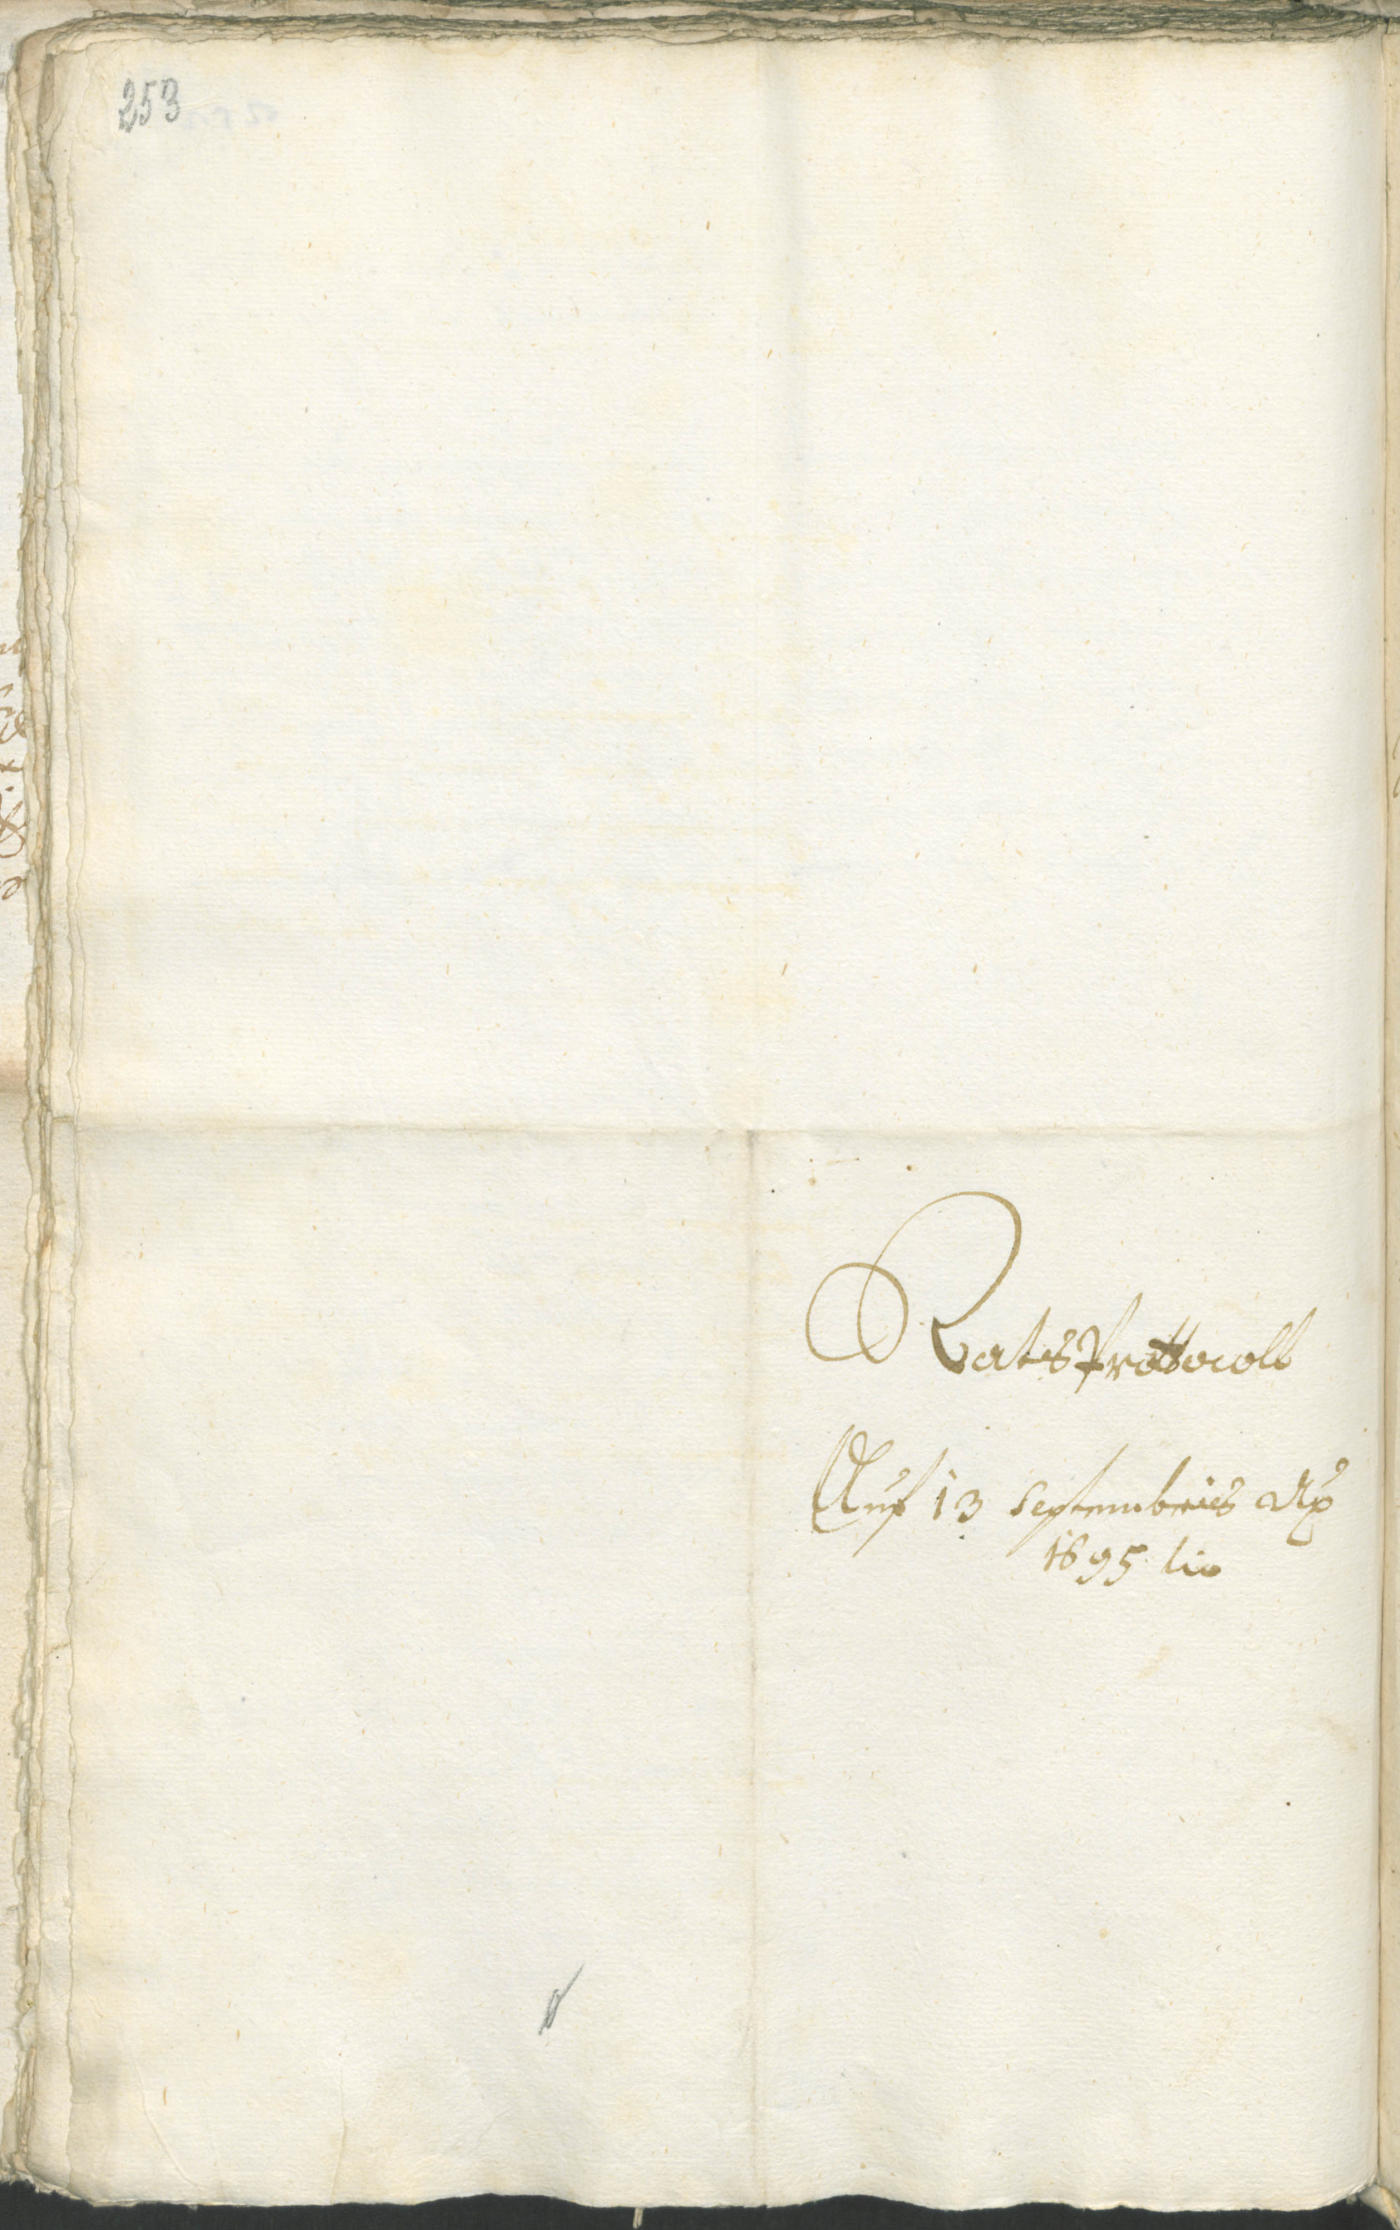 253
RatsProttocoll
Auf 13 Septembris Ao
1695